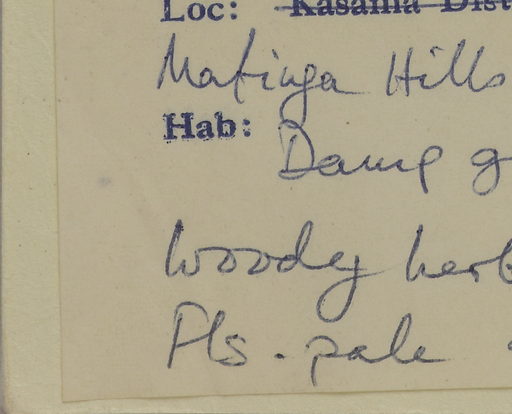 Loc: Kasama Dist
Mafinga Hills
Hab:
Damp g
Woody herb
Fls. pale